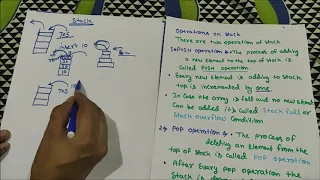 Stack
TOS
insert 10
10
TOS
Operations on Stack
There are two operation of stack
1) PUSH operation → The process of adding
a new element to the top of stack is
called PUSH operation
• Every new element is adding to stack
top is incremented by one.
• In case the array is full and no new element
can be added it is called stack full or
Stack overflow Condition
2) POP operation → The process of
deleting an Element from the
top of stack is called POP operation
• After Every pop operation the
Stack is